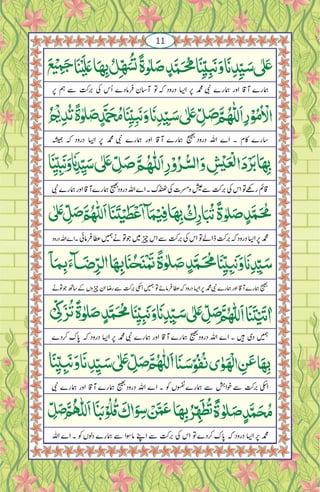 11
عَلٰی سَیِّدِنَا وَنَبِیِّنَا مُحَمَّدٍ صَلٰوةً تُسَهِّلُ بِهَا عَلَیْنَا جَمِیْعَ
ہمارے آقا اور ہمارے نبی محمد پر ایسا درود کہ تو آسان فرما دے اُس کی برکت سے ہم پر
الْاُمُوْرِ اَللّٰهُمَّ صَلِّ عَلٰی سَیِّدِنَا وَنَبِیِّنَا مُحَمَّدٍ صَلٰوةً تُدِیْمُ
سارے کام ۔ اے اللہ درود بھیج ہمارے آقا اور ہمارے نبی محمد پر ایسا درود کہ ہمیشہ
بِهَا بَرْدَ الْعَیْشِ وَالسُّرُوْرِ اَللّٰهُمَّ صَلِّ عَلٰی سَیِّدِنَا وَنَبِیِّنَا
قائم رکھے تو اس کی برکت سے عیش و مسرت کی ٹھنڈک ۔ اے اللہ درود بھیج ہمارے آقا اور ہمارے نبی
مُحَمَّدٍ صَلٰوةً تُبَارِكُ بِهَا فِیْمَا اَعْطَیْتَنَا اَللّٰهُمَّ صَلِّ عَلٰی
محمد پر ایسا درود کہ برکت ڈالے تو اس کی برکت سے اس چیز میں جو تونے ہمیں عطا فرمائی ۔ اے اللہ درود
سَیِّدِنَا وَنَبِیِّنَا مُحَمَّدٍ صَلٰوةً تَمْنَحُنَا بِهَا الرِّضَآءَ بِمَا
بھیج ہمارے آقا اور ہمارے نبی محمد پر ایسا درود کہ عطا فرمائے تو ہمیں اسکی برکت سے رضا ان چیزوں کے ساتھ جو تونے
اٰتَیْتَنَا اَللّٰهُمَّ صَلِّ عَلٰی سَیِّدِنَا وَنَبِیِّنَا مُحَمَّدٍ صَلٰوةً تُزَكِّیْ
ہمیں دی ہیں ۔ اے اللہ درود بھیج ہمارے آقا اور ہمارے نبی محمد پر ایسا درود کہ پاک کردے
بِهَا عَنِ الْهَوٰی نُفُوْسَنَا اَللّٰهُمَّ صَلِّ عَلٰی سَیِّدِنَا وَنَبِیِّنَا
اسکی برکت سے خواہش سے ہمارے نفسوں کو ۔ اے اللہ درود بھیج ہمارے آقا اور ہمارے نبی
مُحَمَّدٍ صَلٰوةً تُطَهِّرُ بِهَا عَمَّنْ سِوَاكَ قُلُوْبَنَا اَللّٰهُمَّ صَلِّ
محمد پر ایسا درود کہ پاک کردے تو اس کی برکت سے اپنے ماسوا سے ہمارے دلوں کو ۔ اے اللہ